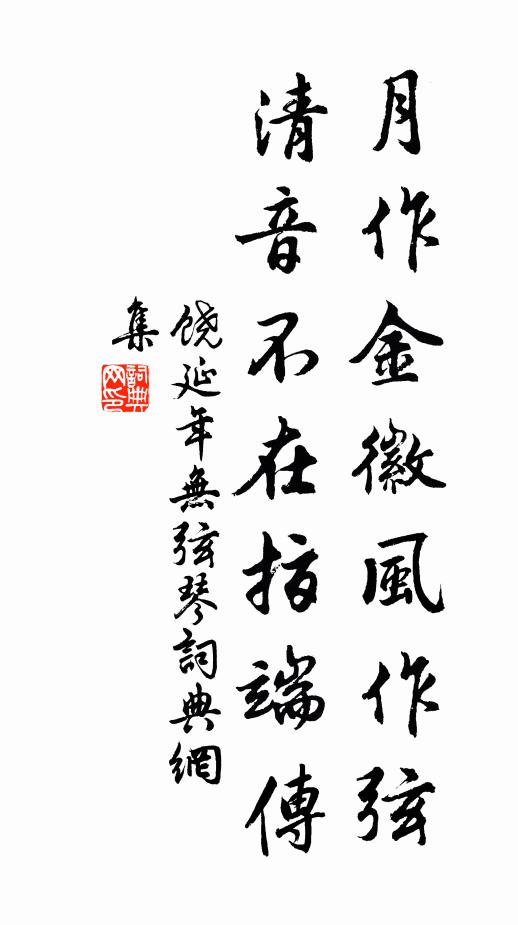 月作金徽風作弦
清音不在指端傳
饒延年無弦琴詞典網
集
詞典
网印